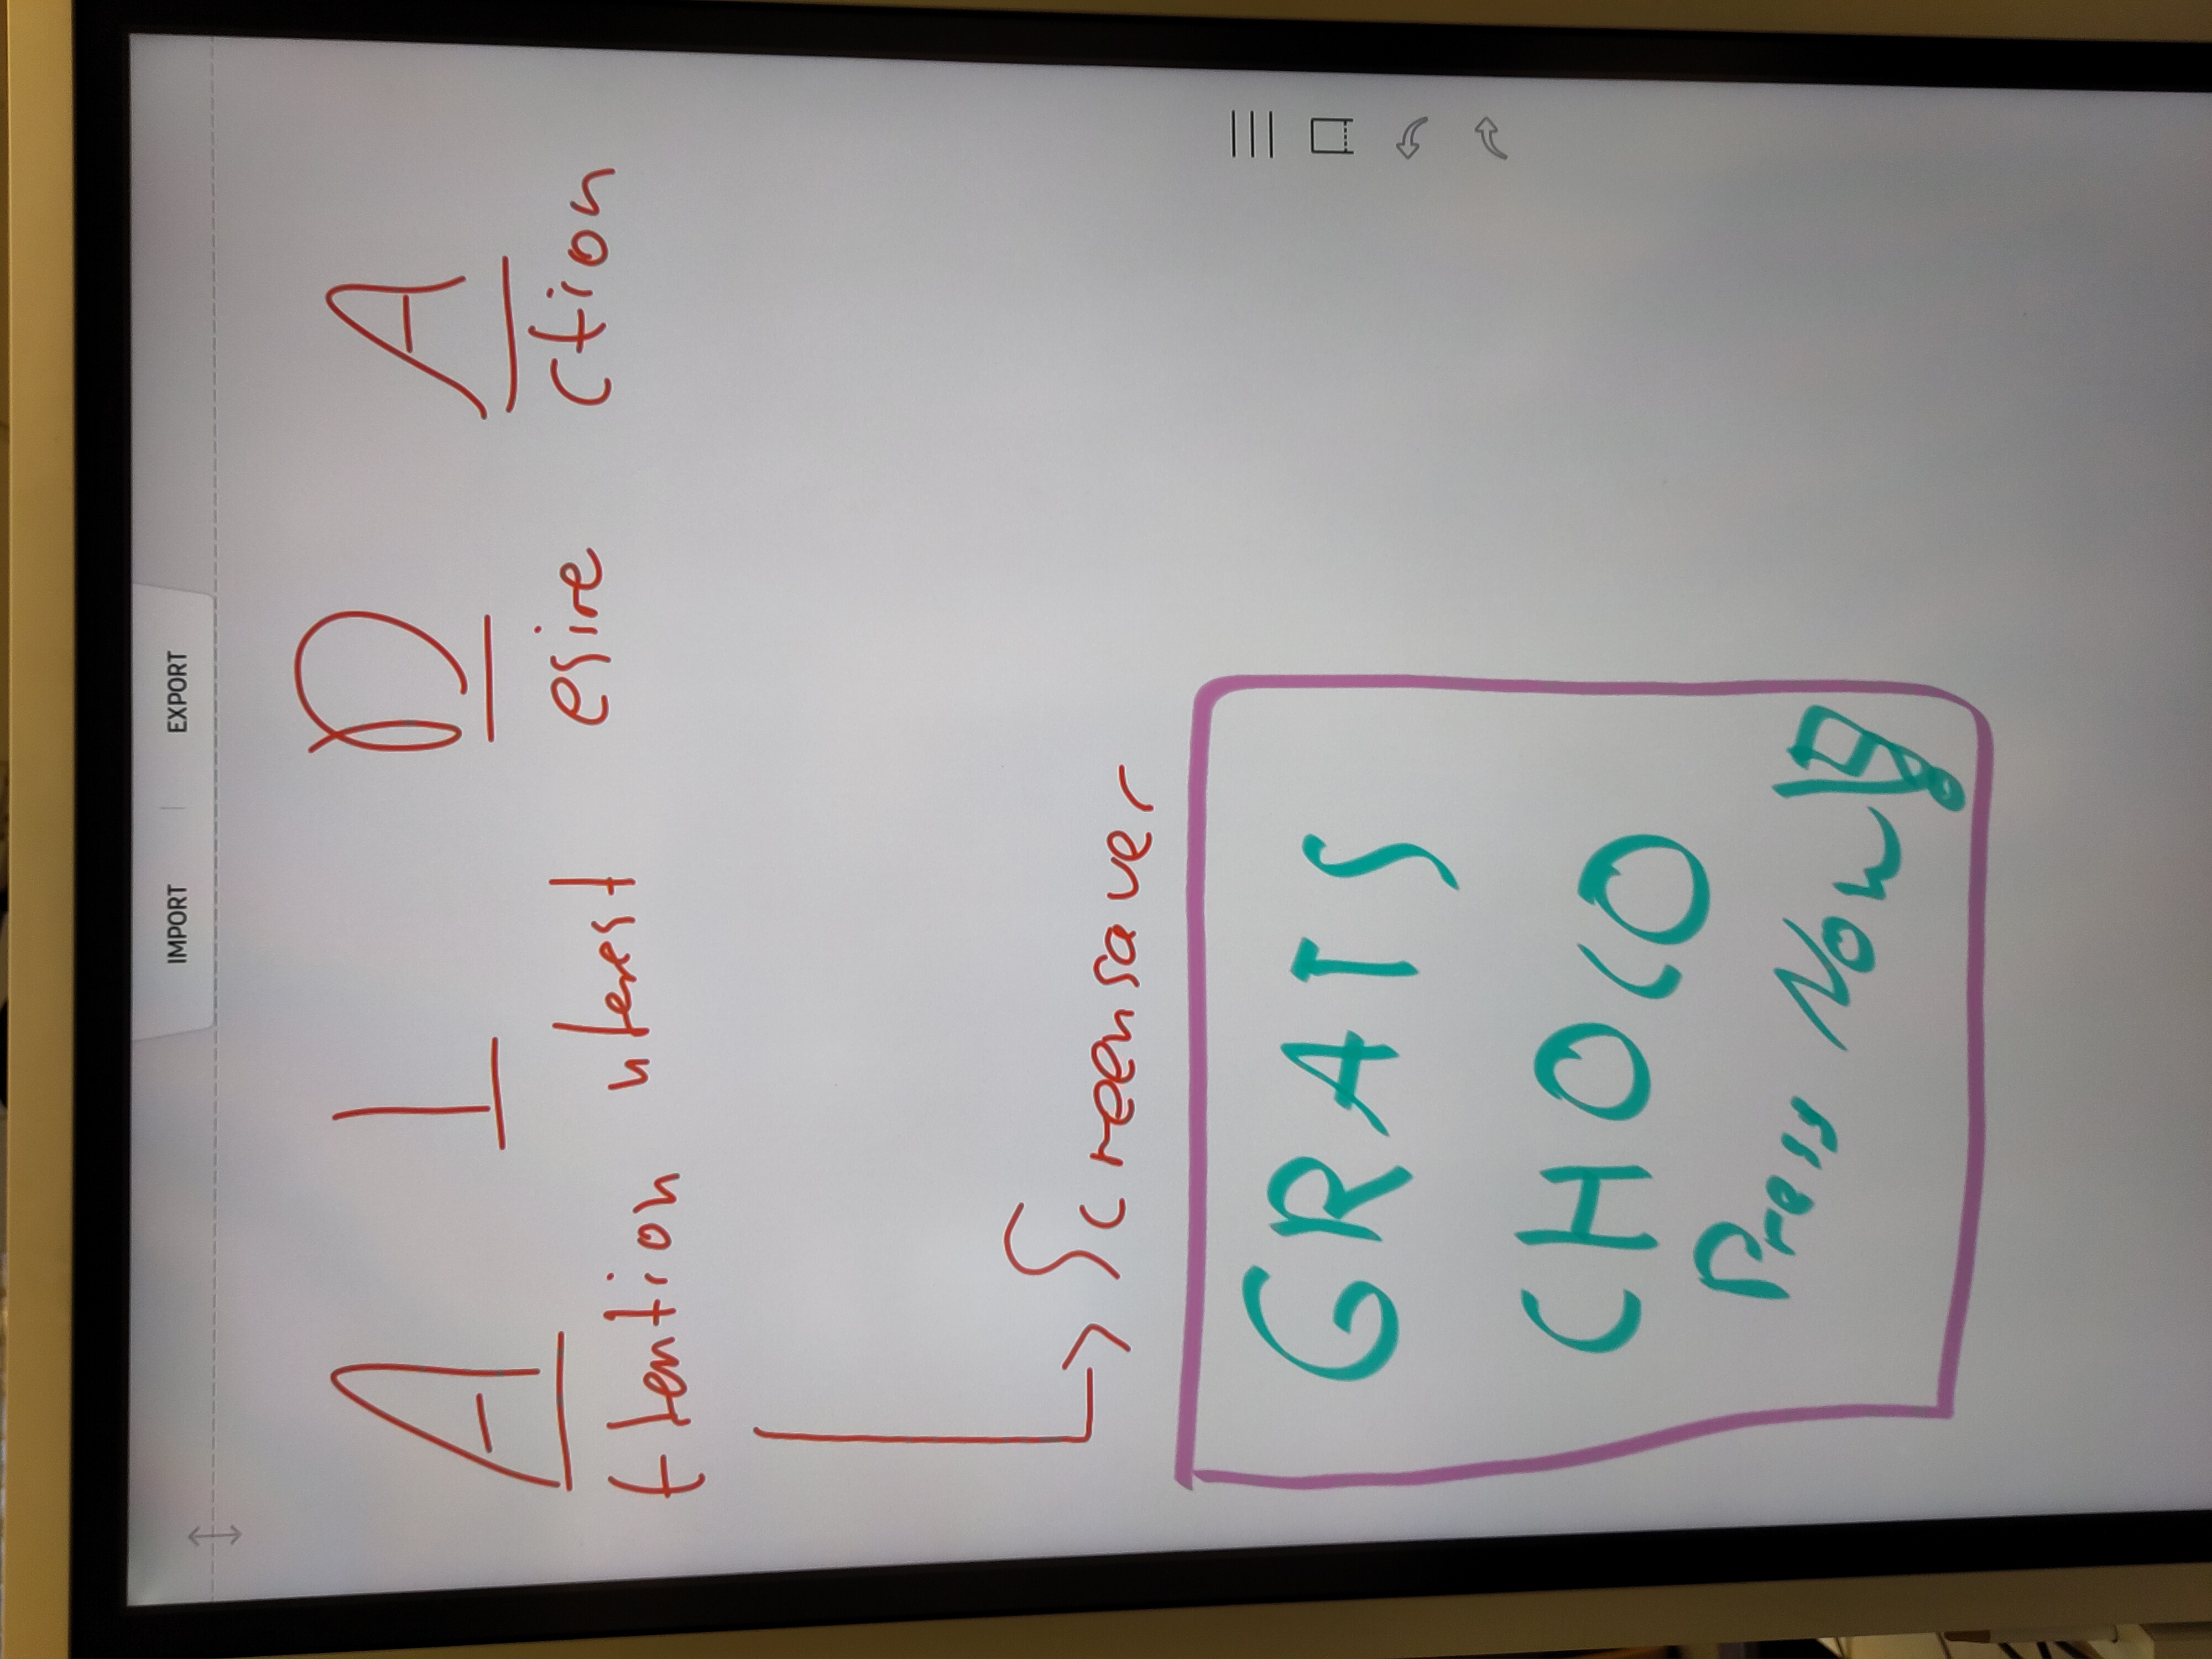 IMPORT EXPORT
A I D A
ttention nterest esire ction
Screensaver
GRATS
CHOCO
Press Now!